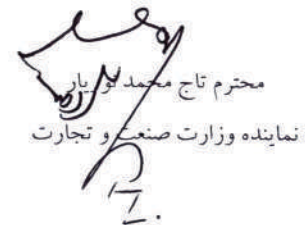 محترم تاج محمد نوریار
نماینده وزارت صنعت و تجارت